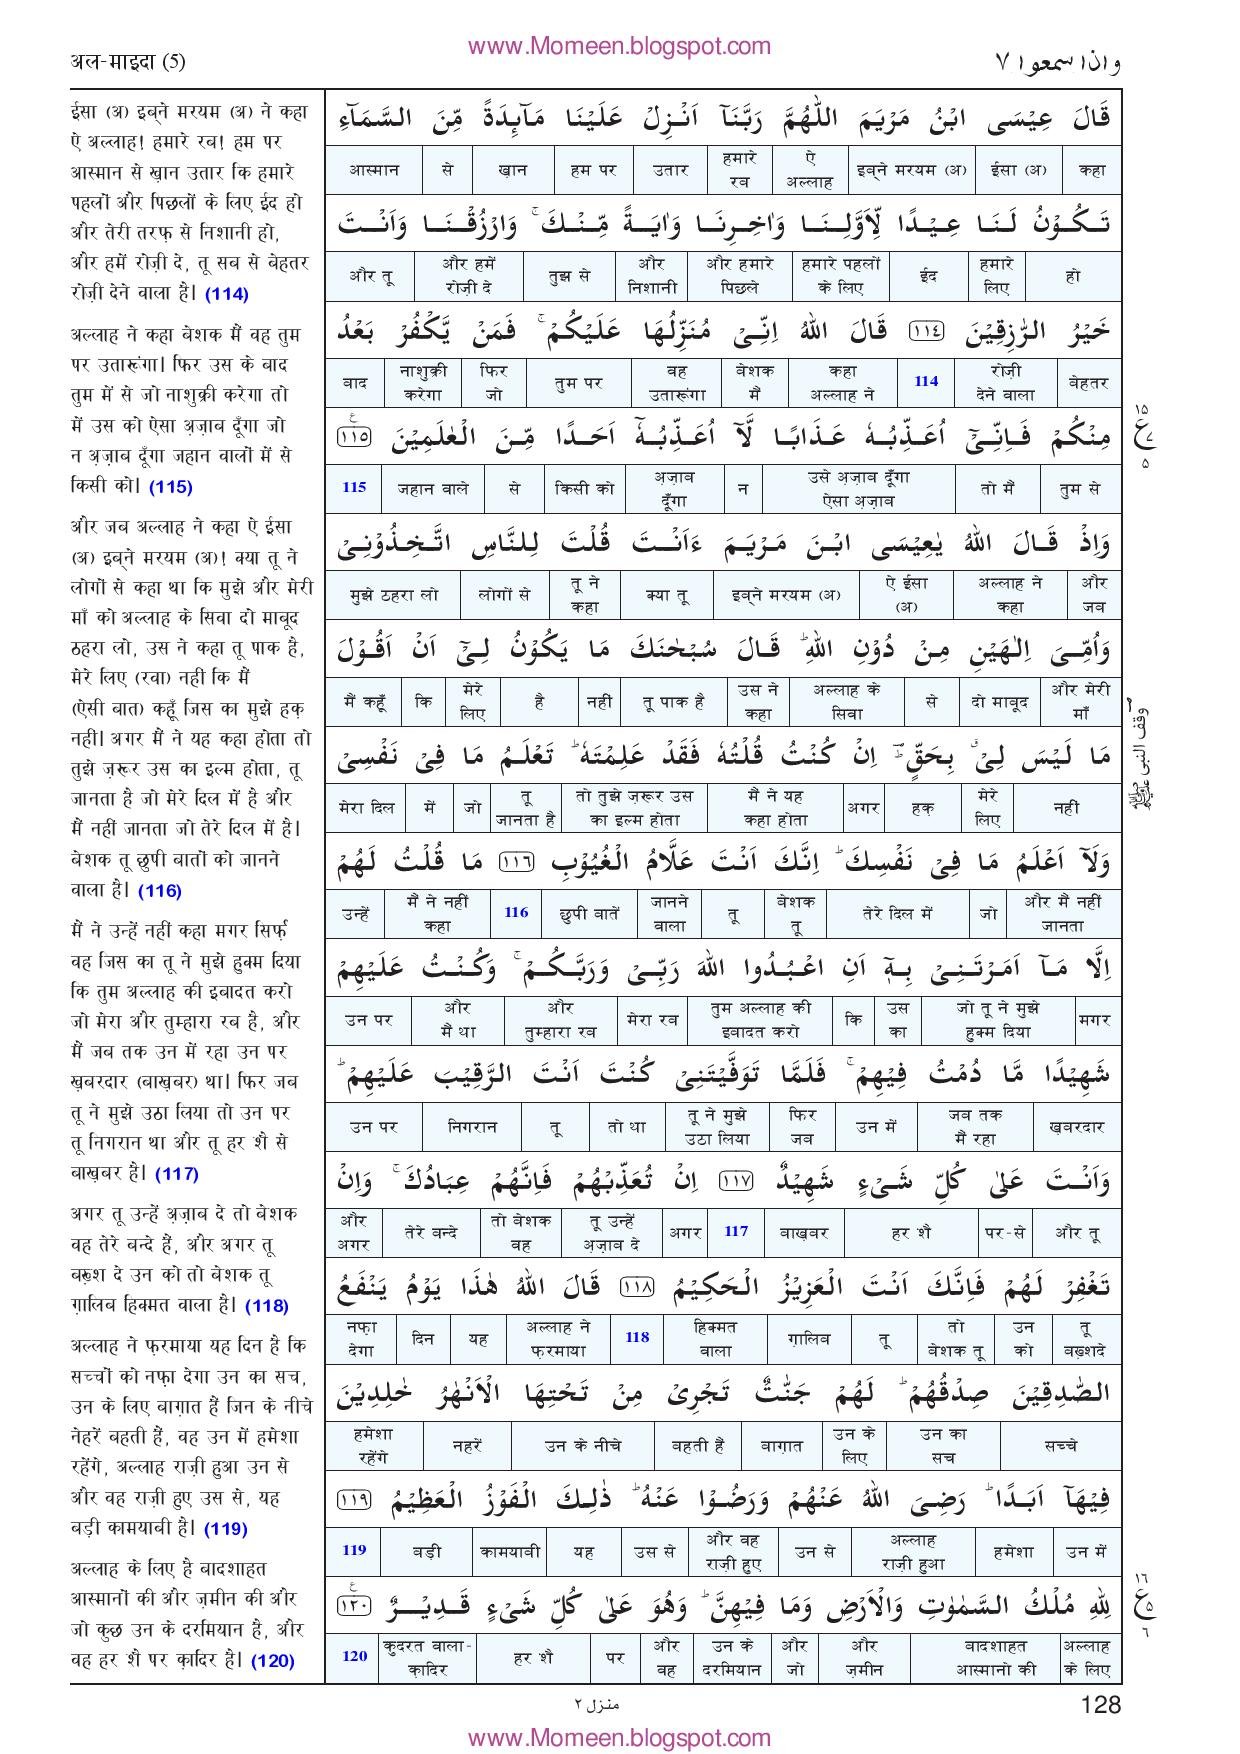 www.Momeen.blogspot.com
अल-माइदा (5)
واذا سمعوا ٧
ईसा (अ) इब्ने मरयम (अ) ने कहा
ऐ अल्लाह! हमारे रब! हम पर
आस्मान से ख़ान उतार कि हमारे
पहलों और पिछलों के लिए ईद हो
और तेरी तरफ़ से निशानी हो,
और हमें रोज़ी दे, तू सब से बेहतर
रोज़ी देने वाला है। (114)
अल्लाह ने कहा बेशक मैं वह तुम
पर उतारूंगा। फिर उस के बाद
तुम में से जो नाशुक्री करेगा तो
में उस को ऐसा अज़ाब दूँगा जो
न अज़ाब दूँगा जहान वालों में से
किसी को। (115)
और जब अल्लाह ने कहा ऐ ईसा
(अ) इब्ने मरयम (अ)! क्या तू ने
लोगों से कहा था कि मुझे और मेरी
माँ को अल्लाह के सिवा दो माबूद
ठहरा लो, उस ने कहा तू पाक है,
मेरे लिए (रवा) नहीं कि मैं
(ऐसी बात) कहूँ जिस का मुझे हक़
नहीं। अगर मैं ने यह कहा होता तो
तुझे ज़रूर उस का इल्म होता, तू
जानता है जो मेरे दिल में है और
मैं नहीं जानता जो तेरे दिल में है।
बेशक तू छुपी बातों को जानने
वाला है। (116)
मैं ने उन्हें नहीं कहा मगर सिर्फ़
वह जिस का तू ने मुझे हुक्म दिया
कि तुम अल्लाह की इबादत करो
जो मेरा और तुम्हारा रब है, और
मैं जब तक उन में रहा उन पर
ख़बरदार (बाख़बर) था। फिर जब
तू ने मुझे उठा लिया तो उन पर
तू निगरान था और तू हर शै से
बाख़बर है। (117)
अगर तू उन्हें अज़ाब दे तो बेशक
वह तेरे बन्दे हैं, और अगर तू
बख़्श दे उन को तो बेशक तू
ग़ालिब हिक्मत वाला है। (118)
अल्लाह ने फ़रमाया यह दिन है कि
सच्चों को नफ़ा देगा उन का सच,
उन के लिए बाग़ात हैं जिन के नीचे
नेहरें बहती हैं, वह उन में हमेशा
रहेंगे, अल्लाह राज़ी हुआ उन से
और वह राज़ी हुए उस से, यह
बड़ी कामयाबी है। (119)
अल्लाह के लिए है बादशाहत
आस्मानों की और ज़मीन की और
जो कुछ उन के दरमियान है, और
वह हर शै पर क़ादिर है। (120)
قَالَ عِيْسَى ابْنُ مَرْيَمَ اللّٰهُمَّ رَبَّنَآ اَنْزِلْ عَلَيْنَا مَآئِدَةً مِّنَ السَّمَآءِ
कहा | ईसा (अ) | इब्ने मरयम (अ) | ऐ अल्लाह | हमारे रब | उतार | हम पर | ख़ान | से | आस्मान
تَكُوْنُ لَنَا عِيْدًا لِّاَوَّلِنَا وَاٰخِرِنَا وَاٰيَةً مِّنْكَ ۚ وَارْزُقْنَا وَاَنْتَ
हो | हमारे लिए | ईद | हमारे पहलों के लिए | और हमारे पिछले | और निशानी | तुझ से | और हमें रोज़ी दे | और तू
خَيْرُ الرّٰزِقِيْنَ ١١٤ قَالَ اللّٰهُ اِنِّىْ مُنَزِّلُهَا عَلَيْكُمْ ۚ فَمَنْ يَّكْفُرْ بَعْدُ
बेहतर | रोज़ी देने वाला | 114 | कहा अल्लाह ने | बेशक मैं | वह उतारूंगा | तुम पर | फिर जो | नाशुक्री करेगा | बाद
مِنْكُمْ فَاِنِّىْٓ اُعَذِّبُهٗ عَذَابًا لَّآ اُعَذِّبُهٗٓ اَحَدًا مِّنَ الْعٰلَمِيْنَ ١١٥
तुम से | तो मैं | उसे अज़ाब दूँगा ऐसा अज़ाब | न | अज़ाब दूँगा | किसी को | से | जहान वाले | 115
وَاِذْ قَالَ اللّٰهُ يٰعِيْسَى ابْنَ مَرْيَمَ ءَاَنْتَ قُلْتَ لِلنَّاسِ اتَّخِذُوْنِىْ
और जब | अल्लाह ने कहा | ऐ ईसा (अ) | इब्ने मरयम (अ) | क्या तू | तू ने कहा | लोगों से | मुझे ठहरा लो
وَاُمِّىَ اِلٰهَيْنِ مِنْ دُوْنِ اللّٰهِ ۗ قَالَ سُبْحٰنَكَ مَا يَكُوْنُ لِىْٓ اَنْ اَقُوْلَ
और मेरी माँ | दो माबूद | से | अल्लाह के सिवा | उस ने कहा | तू पाक है | नहीं | है | मेरे लिए | कि | मैं कहूँ
مَا لَيْسَ لِىْ ۙ بِحَقٍّ ۗ اِنْ كُنْتُ قُلْتُهٗ فَقَدْ عَلِمْتَهٗ ۗ تَعْلَمُ مَا فِىْ نَفْسِىْ
नहीं | मेरे लिए | हक़ | अगर | मैं ने यह कहा होता | तो तुझे ज़रूर उस का इल्म होता | तू जानता है | जो | में | मेरा दिल
وَلَآ اَعْلَمُ مَا فِىْ نَفْسِكَ ۗ اِنَّكَ اَنْتَ عَلَّامُ الْغُيُوْبِ ١١٦ مَا قُلْتُ لَهُمْ
और मैं नहीं जानता | जो | तेरे दिल में | बेशक तू | तू | जानने वाला | छुपी बातें | 116 | मैं ने नहीं कहा | उन्हें
اِلَّا مَآ اَمَرْتَنِىْ بِهٖٓ اَنِ اعْبُدُوا اللّٰهَ رَبِّىْ وَرَبَّكُمْ ۚ وَكُنْتُ عَلَيْهِمْ
मगर | जो तू ने मुझे हुक्म दिया | उस का | कि | तुम अल्लाह की इबादत करो | मेरा रब | और तुम्हारा रब | और मैं था | उन पर
شَهِيْدًا مَّا دُمْتُ فِيْهِمْ ۚ فَلَمَّا تَوَفَّيْتَنِىْ كُنْتَ اَنْتَ الرَّقِيْبَ عَلَيْهِمْ ۗ
ख़बरदार | जब तक मैं रहा | उन में | फिर जब | तू ने मुझे उठा लिया | तो था | तू | निगरान | उन पर
وَاَنْتَ عَلٰى كُلِّ شَىْءٍ شَهِيْدٌ ١١٧ اِنْ تُعَذِّبْهُمْ فَاِنَّهُمْ عِبَادُكَ ۚ وَاِنْ
और तू | पर-से | हर शै | बाख़बर | 117 | अगर | तू उन्हें अज़ाब दे | तो बेशक वह | तेरे बन्दे | और अगर
تَغْفِرْ لَهُمْ فَاِنَّكَ اَنْتَ الْعَزِيْزُ الْحَكِيْمُ ١١٨ قَالَ اللّٰهُ هٰذَا يَوْمُ يَنْفَعُ
तू बख़्शदे | उन को | तो बेशक तू | तू | ग़ालिब | हिक्मत वाला | 118 | अल्लाह ने फ़रमाया | यह | दिन | नफ़ा देगा
الصّٰدِقِيْنَ صِدْقُهُمْ ۗ لَهُمْ جَنّٰتٌ تَجْرِىْ مِنْ تَحْتِهَا الْاَنْهٰرُ خٰلِدِيْنَ
सच्चे | उन का सच | उन के लिए | बाग़ात | बहती हैं | उन के नीचे | नहरें | हमेशा रहेंगे
فِيْهَآ اَبَدًا ۗ رَضِىَ اللّٰهُ عَنْهُمْ وَرَضُوْا عَنْهُ ۗ ذٰلِكَ الْفَوْزُ الْعَظِيْمُ ١١٩
उन में | हमेशा | अल्लाह राज़ी हुआ | उन से | और वह राज़ी हुए | उस से | यह | कामयाबी | बड़ी | 119
لِلّٰهِ مُلْكُ السَّمٰوٰتِ وَالْاَرْضِ وَمَا فِيْهِنَّ ۗ وَهُوَ عَلٰى كُلِّ شَىْءٍ قَدِيْرٌ ١٢٠
अल्लाह के लिए | बादशाहत आस्मानो की | और ज़मीन | और जो | उन के दरमियान | और वह | पर | हर शै | कुदरत वाला-क़ादिर | 120
١٥
ع
٥
وقف النبى ﷺ
١٦
ع
٦
منزل ٢
128
www.Momeen.blogspot.com